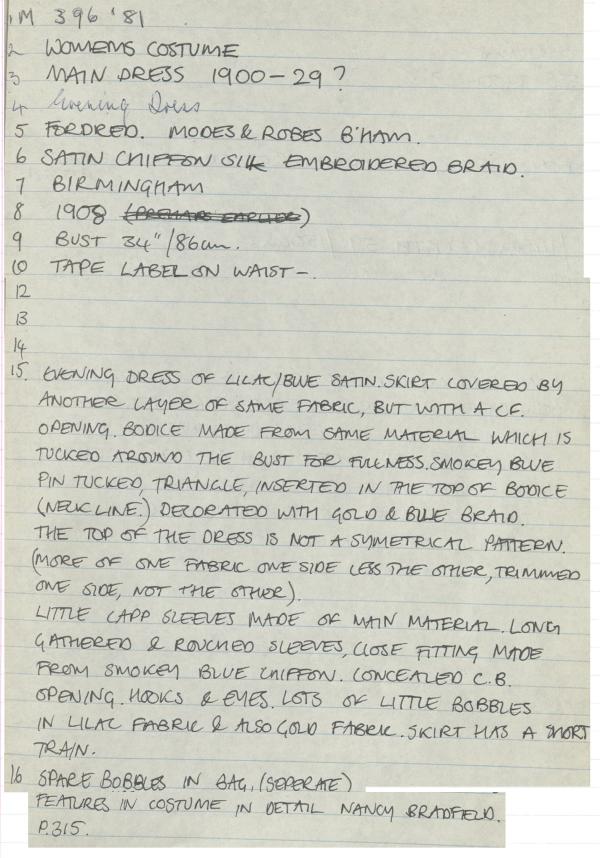 1 M 396 '81
2 WOMENS COSTUME
3 MAIN DRESS 1900-29?
4 Evening Dress
5 FORDRED. MODES & ROBES B'HAM.
6 SATIN CHIFFON SILK EMBROIDERED BRAID.
7 BIRMINGHAM
8 1908 (PERHAPS EARLIER)
9 BUST 34"/86cm.
10 TAPE LABEL ON WAIST-.
12
13
14
15. EVENING DRESS OF LILAC/BLUE SATIN. SKIRT COVERED BY
ANOTHER LAYER OF SAME FABRIC, BUT WITH A C.F.
OPENING. BODICE MADE FROM SAME MATERIAL WHICH IS
TUCKED AROUND THE BUST FOR FULLNESS. SMOKEY BLUE
PIN TUCKED, TRIANGLE, INSERTED IN THE TOP OF BODICE
(NECK LINE.) DECORATED WITH GOLD & BLUE BRAID.
THE TOP OF THE DRESS IS NOT A SYMETRICAL PATTERN.
(MORE OF ONE FABRIC ONE SIDE LESS THE OTHER, TRIMMED
ONE SIDE, NOT THE OTHER).
LITTLE CAPP SLEEVES MADE OF MAIN MATERIAL. LONG
GATHERED & ROUCHED SLEEVES, CLOSE FITTING MADE
FROM SMOKEY BLUE CHIFFON. CONCEALED C.B.
OPENING. HOOKS & EYES. LOTS OF LITTLE BOBBLES
IN LILAC FABRIC & ALSO GOLD FABRIC. SKIRT HAS A SHORT
TRAIN.
16 SPARE BOBBLES IN BAG, (SEPERATE)
FEATURES IN COSTUME IN DETAIL NANCY BRADFIELD.
P.315.